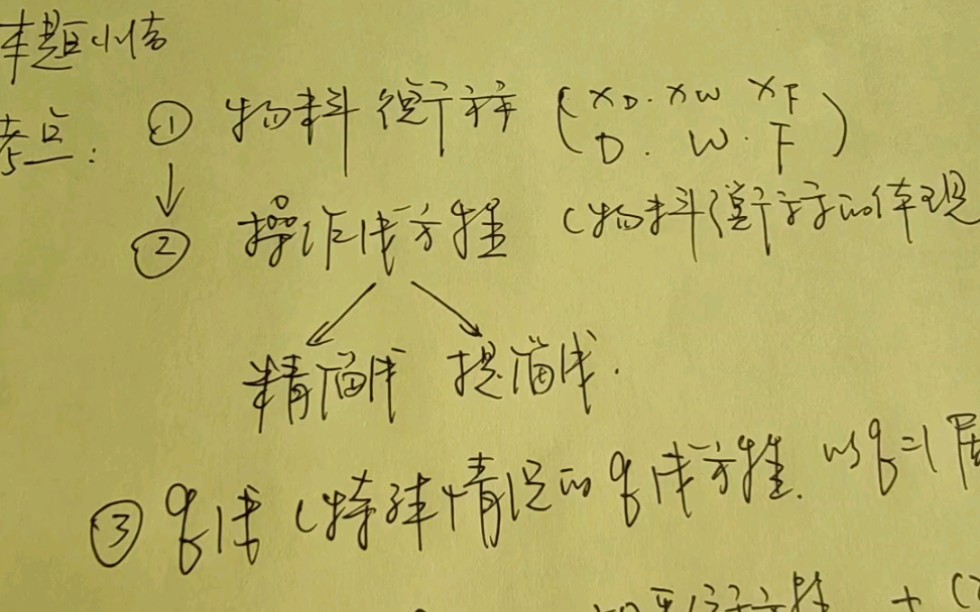 本题小结
考点：① 物料衡算 (xD. xW xF
D. W. F)
↓
② 操作线方程 (物料衡算的体现
精馏线 提馏线.
③ q线 (特殊情况的q线方程. 以q=1居